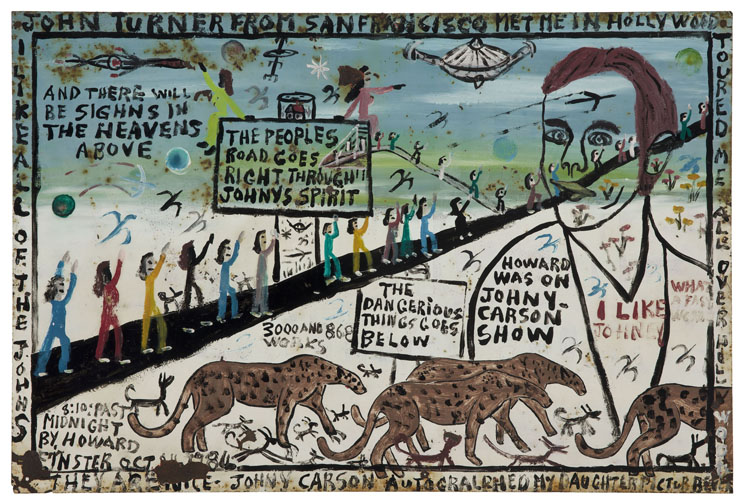 JOHN TURNER FROM SANFRANCISCO MET ME IN HOLLYWOOD.
TOURED ME ALL OVER
I LIKE ALL OF THE JOHNS
THEY ARE NICE. JOHNY CARSON AUTOGRALPHED MY DAUGHTER PICTUR
AND THERE WILL
BE SIGHNS IN
THE HEAVENS
ABOVE
THE PEOPLES
ROAD GOES
RIGHT THROUGH!!
JOHNYS SPIRIT
HOWARD
WAS ON
JOHNY-
CARSON
SHOW
I LIKE
JOHNEY
WHAT
A FAST
THE
DANGERIOUS
THINGS GOES
BELOW
3000 AND 868
WORKS
8:10: PAST
MIDNIGHT
BY. HOWARD
FINSTER OCT